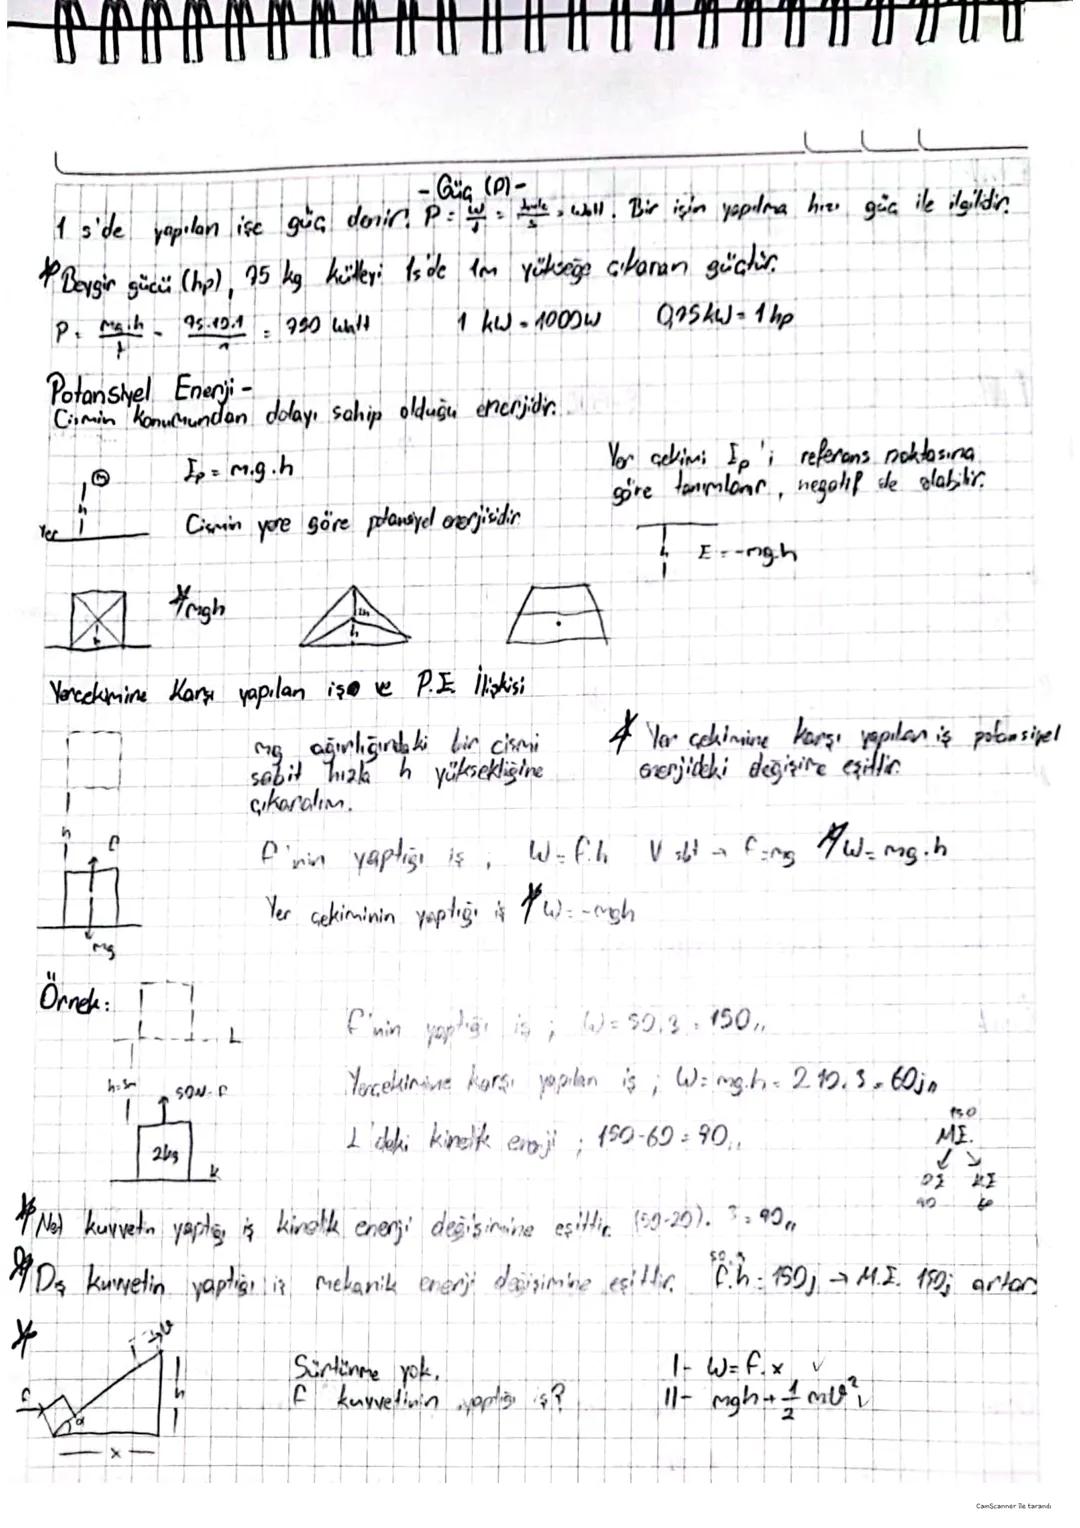 - Güç (P) -
1 s'de yapılan işe güç denir! P = W/t = Joule/s = Watt. Bir işin yapılma hızı güç ile ilgilidir.
* Beygir gücü (hp), 75 kg kütleyi 1s'de 1m yükseğe çıkaran güçtür.
P = m.g.h/t = 75.10.1/1 = 750 Watt    1 kW = 1000W    0,75kW = 1 hp
Potansiyel Enerji -
Cismin konumundan dolayı sahip olduğu enerjidir.
m
h
Yer
Ep = m.g.h
Cismin yere göre potansiyel enerjisidir
Yer çekimi Ep'i referans noktasına
göre tanımlanır, negatif de olabilir.
h    E = -mg.h
h    * mgh    2h    h
Yerçekimine Karşı yapılan iş ve P.E İlişkisi
mg ağırlığındaki bir cismi
sabit hızla h yüksekliğine
çıkaralım.
* Yer çekimine karşı yapılan iş potansiyel
enerjideki değişime eşittir.
h    F    mg
F'nin yaptığı iş ; W = F.h    V sbt → F = mg    * W = mg.h
Yer çekiminin yaptığı iş * W = -mgh
Örnek:
L
h=3m
50N=F
2kg
K
F'nin yaptığı iş ; W = 50.3 = 150,,
Yerçekimine karşı yapılan iş ; W = mg.h = 2.10.3 = 60j,,
L'deki kinetik enerji ; 150-60 = 90,,
150
M.E.
PE    KE
90    60
* Net kuvvetin yaptığı iş kinetik enerji değişimine eşittir. (50-20). 3 = 90,,
* Dış kuvvetin yaptığı iş mekanik enerji değişimine eşittir. F.h = 150j → M.E. 150j artar
50 . 3
*
F    α    h    x    V
Sürtünme yok.
F kuvvetinin yaptığı iş?
I- W = F.x ✓
II- mgh + 1/2 mV² ✓
CamScanner ile tarandı